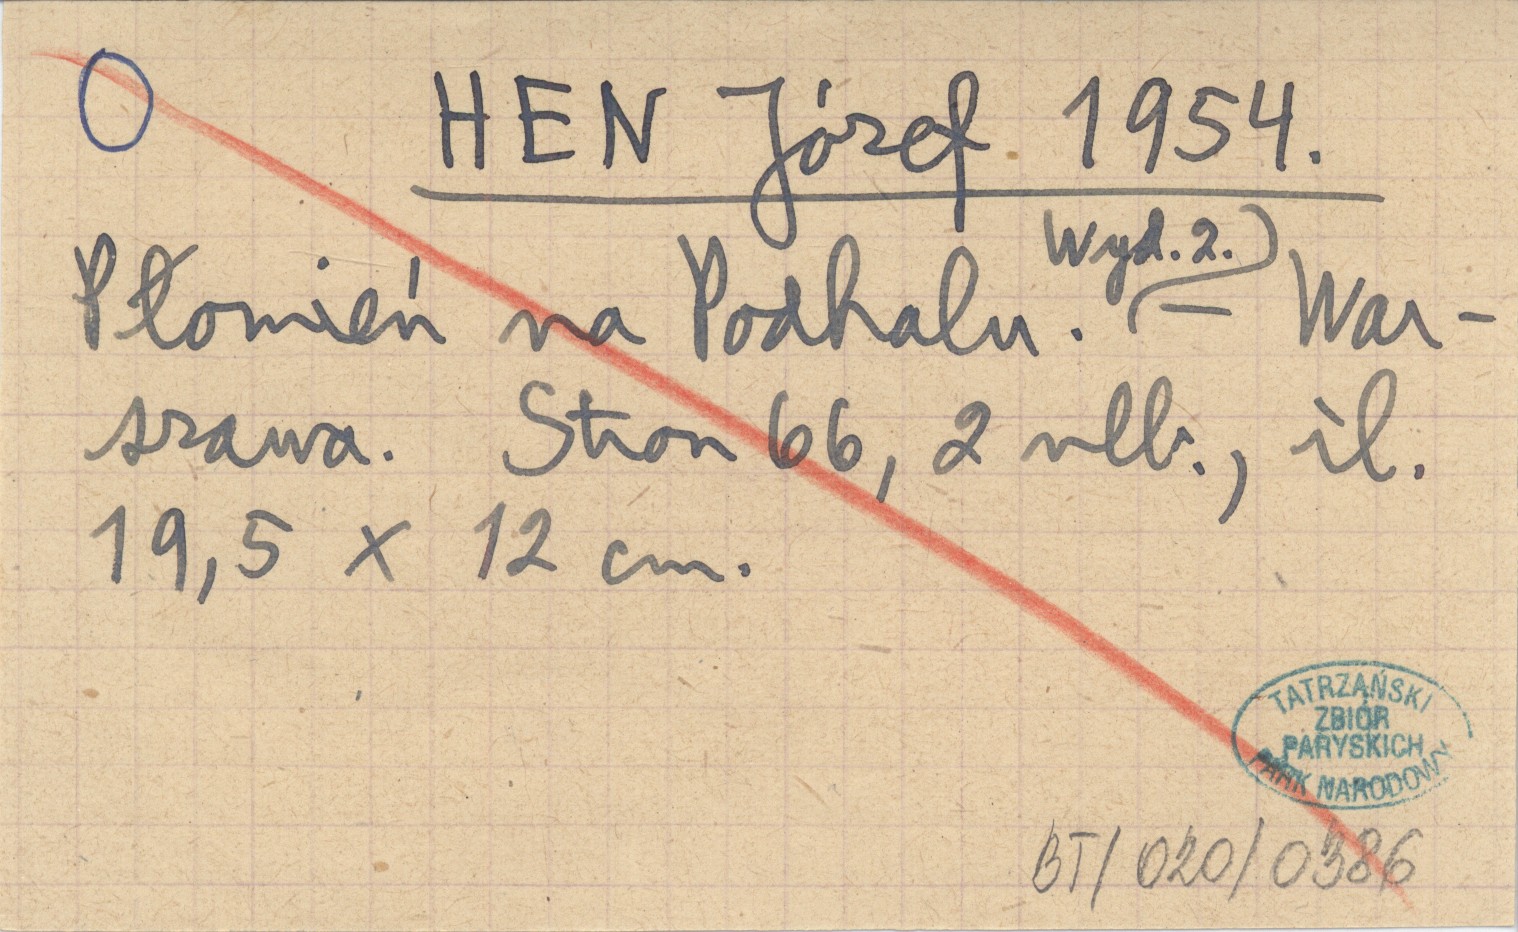 HEN Józef 1954.
Wyd. 2.
Płomień na Podhalu. — War-
szawa. Stron 66, 2 nlb., il.
19,5 x 12 cm.
TATRZAŃSKI
ZBIÓR
PARYSKICH
PARK NARODOWY
BT/020/0386